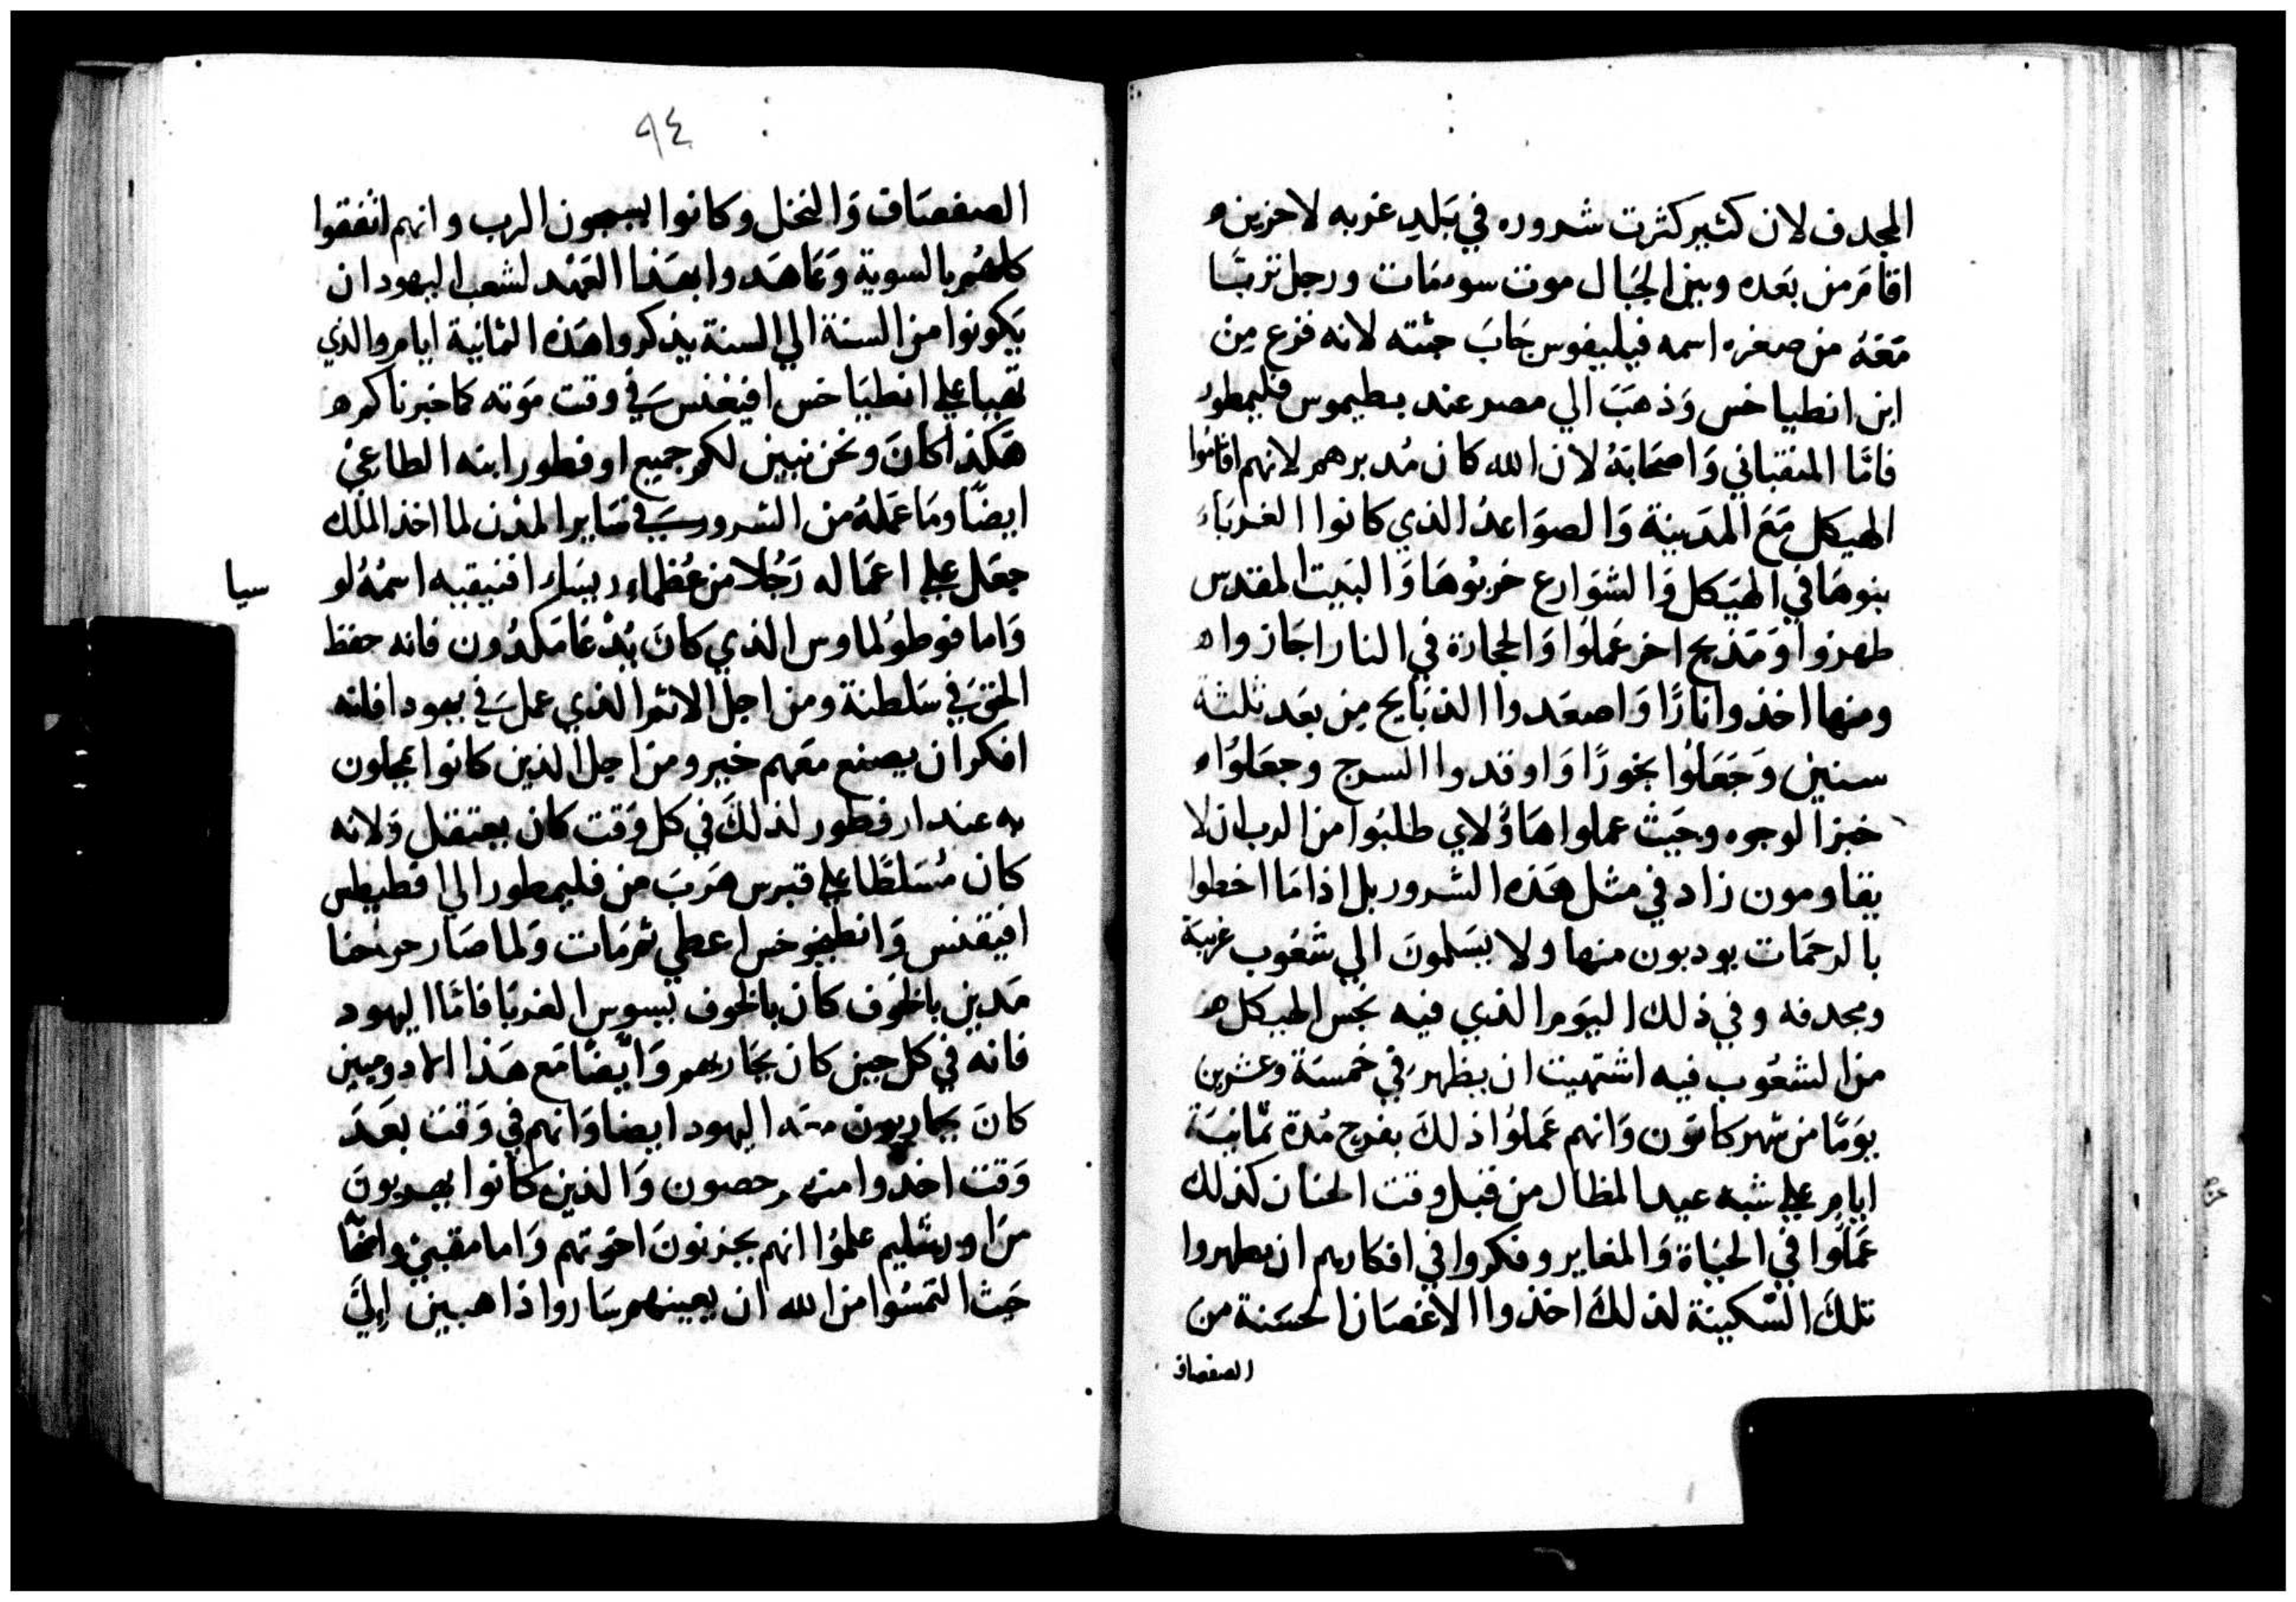 المجدف لان كثير كثرت شروره في بَلدِ غربه لاحزين
اقامَر من بَعده وبين الجبَال موت سو مَات ورجل تربَّا
مَعَهُ من صغره اسمه فيليفوس جَابَ جثته لانه فزع مِن
ابن انطياخس وَذهَبَ الي مصر عند بطيموس فليمطور
فامَّا المنقباني وَاصحَابَهُ لان الله كان مُدبرهم لانهم اقامُوا
الهيكل مَعَ المدَينة وَالصوَاعدُ الذي كانوا الغربَاء
بنوهَا في الهيَكل وَالشوَارع خربُوهَا وَالبَيت المقدس
طهرُوا وَمَذبح اخر عَملوُا وَالحجارة في النار اجَازوا
ومنها اخذوا نارًا وَاصعَدوا الذبَايح مِن بَعد ثلثة
سنين وَجَعَلوُا بخورًا وَاوقدوا السرج وجعَلوُا
خبز الوجوه وحَيث عملوا هَاوُلاي طلبُوا من الرب ان لا
يقاومون زاد في مثل هَذه الشرور بل اذا مَا اخطوا
بالرحمَات يودبون منها ولا يسَلمونَ الي شعُوب غريبَة
ومجدفه وفي ذلك اليَوم الذي فيه نجس الهيكل
من الشعُوب فيه اشتهيت ان يظهر في خمسَة وعشرين
يوَمًا من شهر كانوَن وَانهم عَملوُا ذلكَ بفرح مُدة ثمانيَة
ايام علي شبه عيد المظال من قبل وقت الحنان كذلك
عَملَوا في الحيَاة وَالمغاير وفكروا في افكارهم ان يطهروا
تلكَ السّكينة لذلكَ اخذوا الاغصَان الحسَنة من
الصفصاف
٩٤
الصفصَاف وَالنخل وكانوا يسبحون الرب وانهم اتفقوا
كلهُم بالسوية وَتعَاهَدوا بهَذا العَهْد لشعب اليهود ان
يَكونوا من السنة الي السنة يذكروا هَذه الثمانية ايام والذي
تهيا علي انطيَاخس افيغنس في وقت مَوته كما خبرناكم
هَكذا كانَ ونحن نبين لكم جميع اوفطور ابنه الطاغي
ايضًا ومَا عَملهُ من الشرور في سَاير المدُن لما اخذ الملك
جعَل علي اعمَاله رَجُلا من عُظماء افنيقيه اسمُهُ لو
سيا
وَاما فوطولماوس الذي كانَ يُدْعَا مَكدُون فانه حفظ
الحق في سَلطنة ومن اجل الاثم الذي عمل في يهودا فانه
افكر ان يصنع معَهم خير ومن اجل الذين كانوا يمحلون
به عند ارفطور لذلكَ في كل وَقت كان يعتقل وَلانه
كان مُسَلطًا علي قبرس هَربَ من فليمطور الي افطيطس
افيقنس وَانطيوخس اعطي ثم مَات وَلما صَار
مَدين بالخوَف كان بالخوف يسوس الغربَا فامَّا اليهود
فانه في كل حين كان يحَاربهم وَايضًا مَع هَذا الادوميين
كانَ يحاربون اليهود ايضا وَانهم في وَقت بعَدَ
وَقت اخذوا منهم حصون وَالذين كانوا يهربونَ
مَن اورشليم علموُا انهم يحزنونَ اخوَتهم وَاما مقبي واصحا
حَيث التمسُوا من الله ان يعينهم سَاروا ذاهبين اليَ